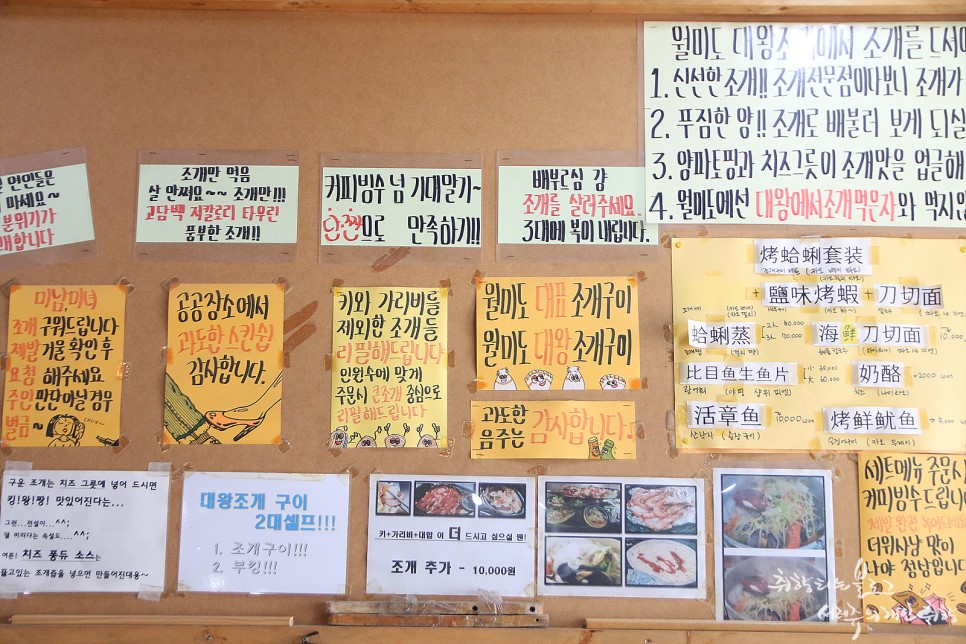 월미도 대왕조개에서 조개를 드셔야
1. 신선한 조개!! 조개전문점이다보니 조개가
2. 푸짐한 양!! 조개로 배불러 보게 되실
3. 양파토핑과 치즈그릇이 조개맛을 업글해
4. 월미도에선 대왕에서조개먹은자와 먹지않
연인들은
마세요~
분위기가
합니다
조개만 먹음
살 안쪄요~~ 조개만!!!
고담백 저칼로리 타우린
풍부한 조개!!
커피빙수 넘 기대말기~
으로 만족하기!!
배부르심 걍
조개를 살려주세요.
3대에 복이 내립니다.
미남,미녀
조개 구워드립니다
제발 거울 확인 후
요청 해주세요
주인 판단 아닐경우
벌금~
공공장소에서
과도한 스킨쉽
감사합니다.
키와 가리비를
제외한 조개들
리필해드립니다
인원수에 맞게
주문시 큰조개 중심으로
리필해드립니다
월미도 대표 조개구이
월미도 대왕 조개구이
과도한
음주는 감사합니다!
烤蛤蜊套装
+ 鹽味烤蝦 + 刀切面
蛤蜊蒸
海鲜刀切面
比目鱼生鱼片
奶酪
+2000 won
活章鱼
烤鲜鱿鱼
구운 조개는 치즈 그릇에 넣어 드시면
킹!왕!짱! 맛있어진다는...
그런...전설이...^^;
덜 비리다는 속설도...^^;
여튼! 치즈 퐁듀 소스는
끓고있는 조개즙을 넣으면 만들어진대용~
대왕조개 구이
2대셀프!!!
1. 조개구이!!!
2. 부킹!!!
키+가리비+대합 이 더 드시고 싶으실 땐!
조개 추가 - 10,000원
세트메뉴 주문시
커피빙수드립니다
더위사냥 맛이
나야 정상입니다